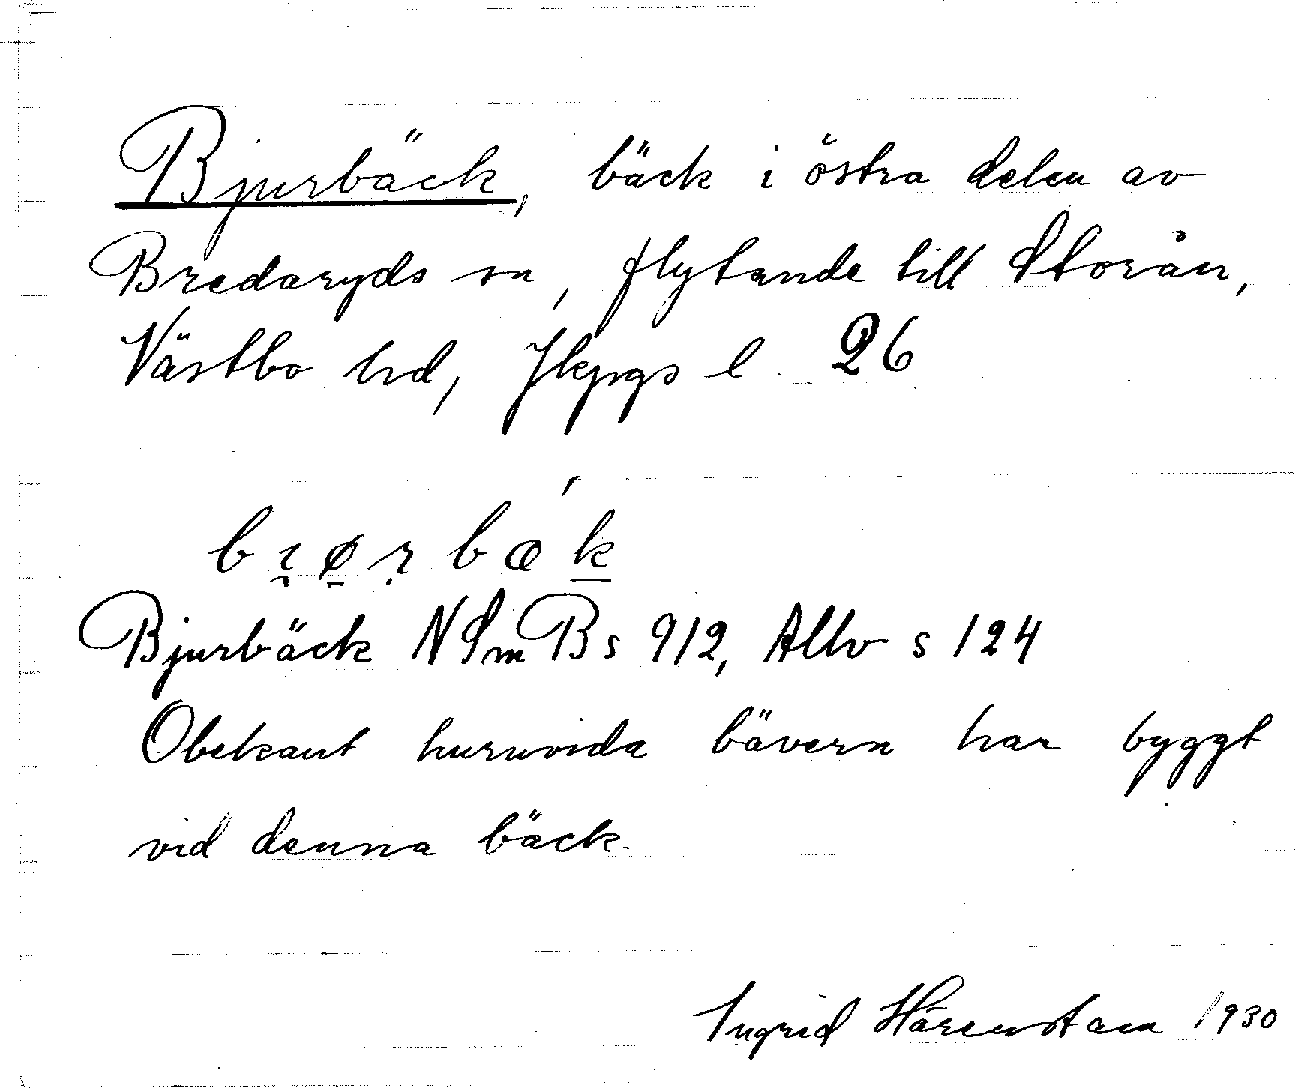 Bjurbäck, bäck i östra delen av
Bredaryds sn, flytande till Storån,
Västbo hd, Jkpgs l. 26
bi̯ø̠ṛbæ´k̠
Bjurbäck NSmB s 912, Allv s 124
Obekant huruvida bävern har byggt
vid denna bäck.
Ingrid Härenstam 1930